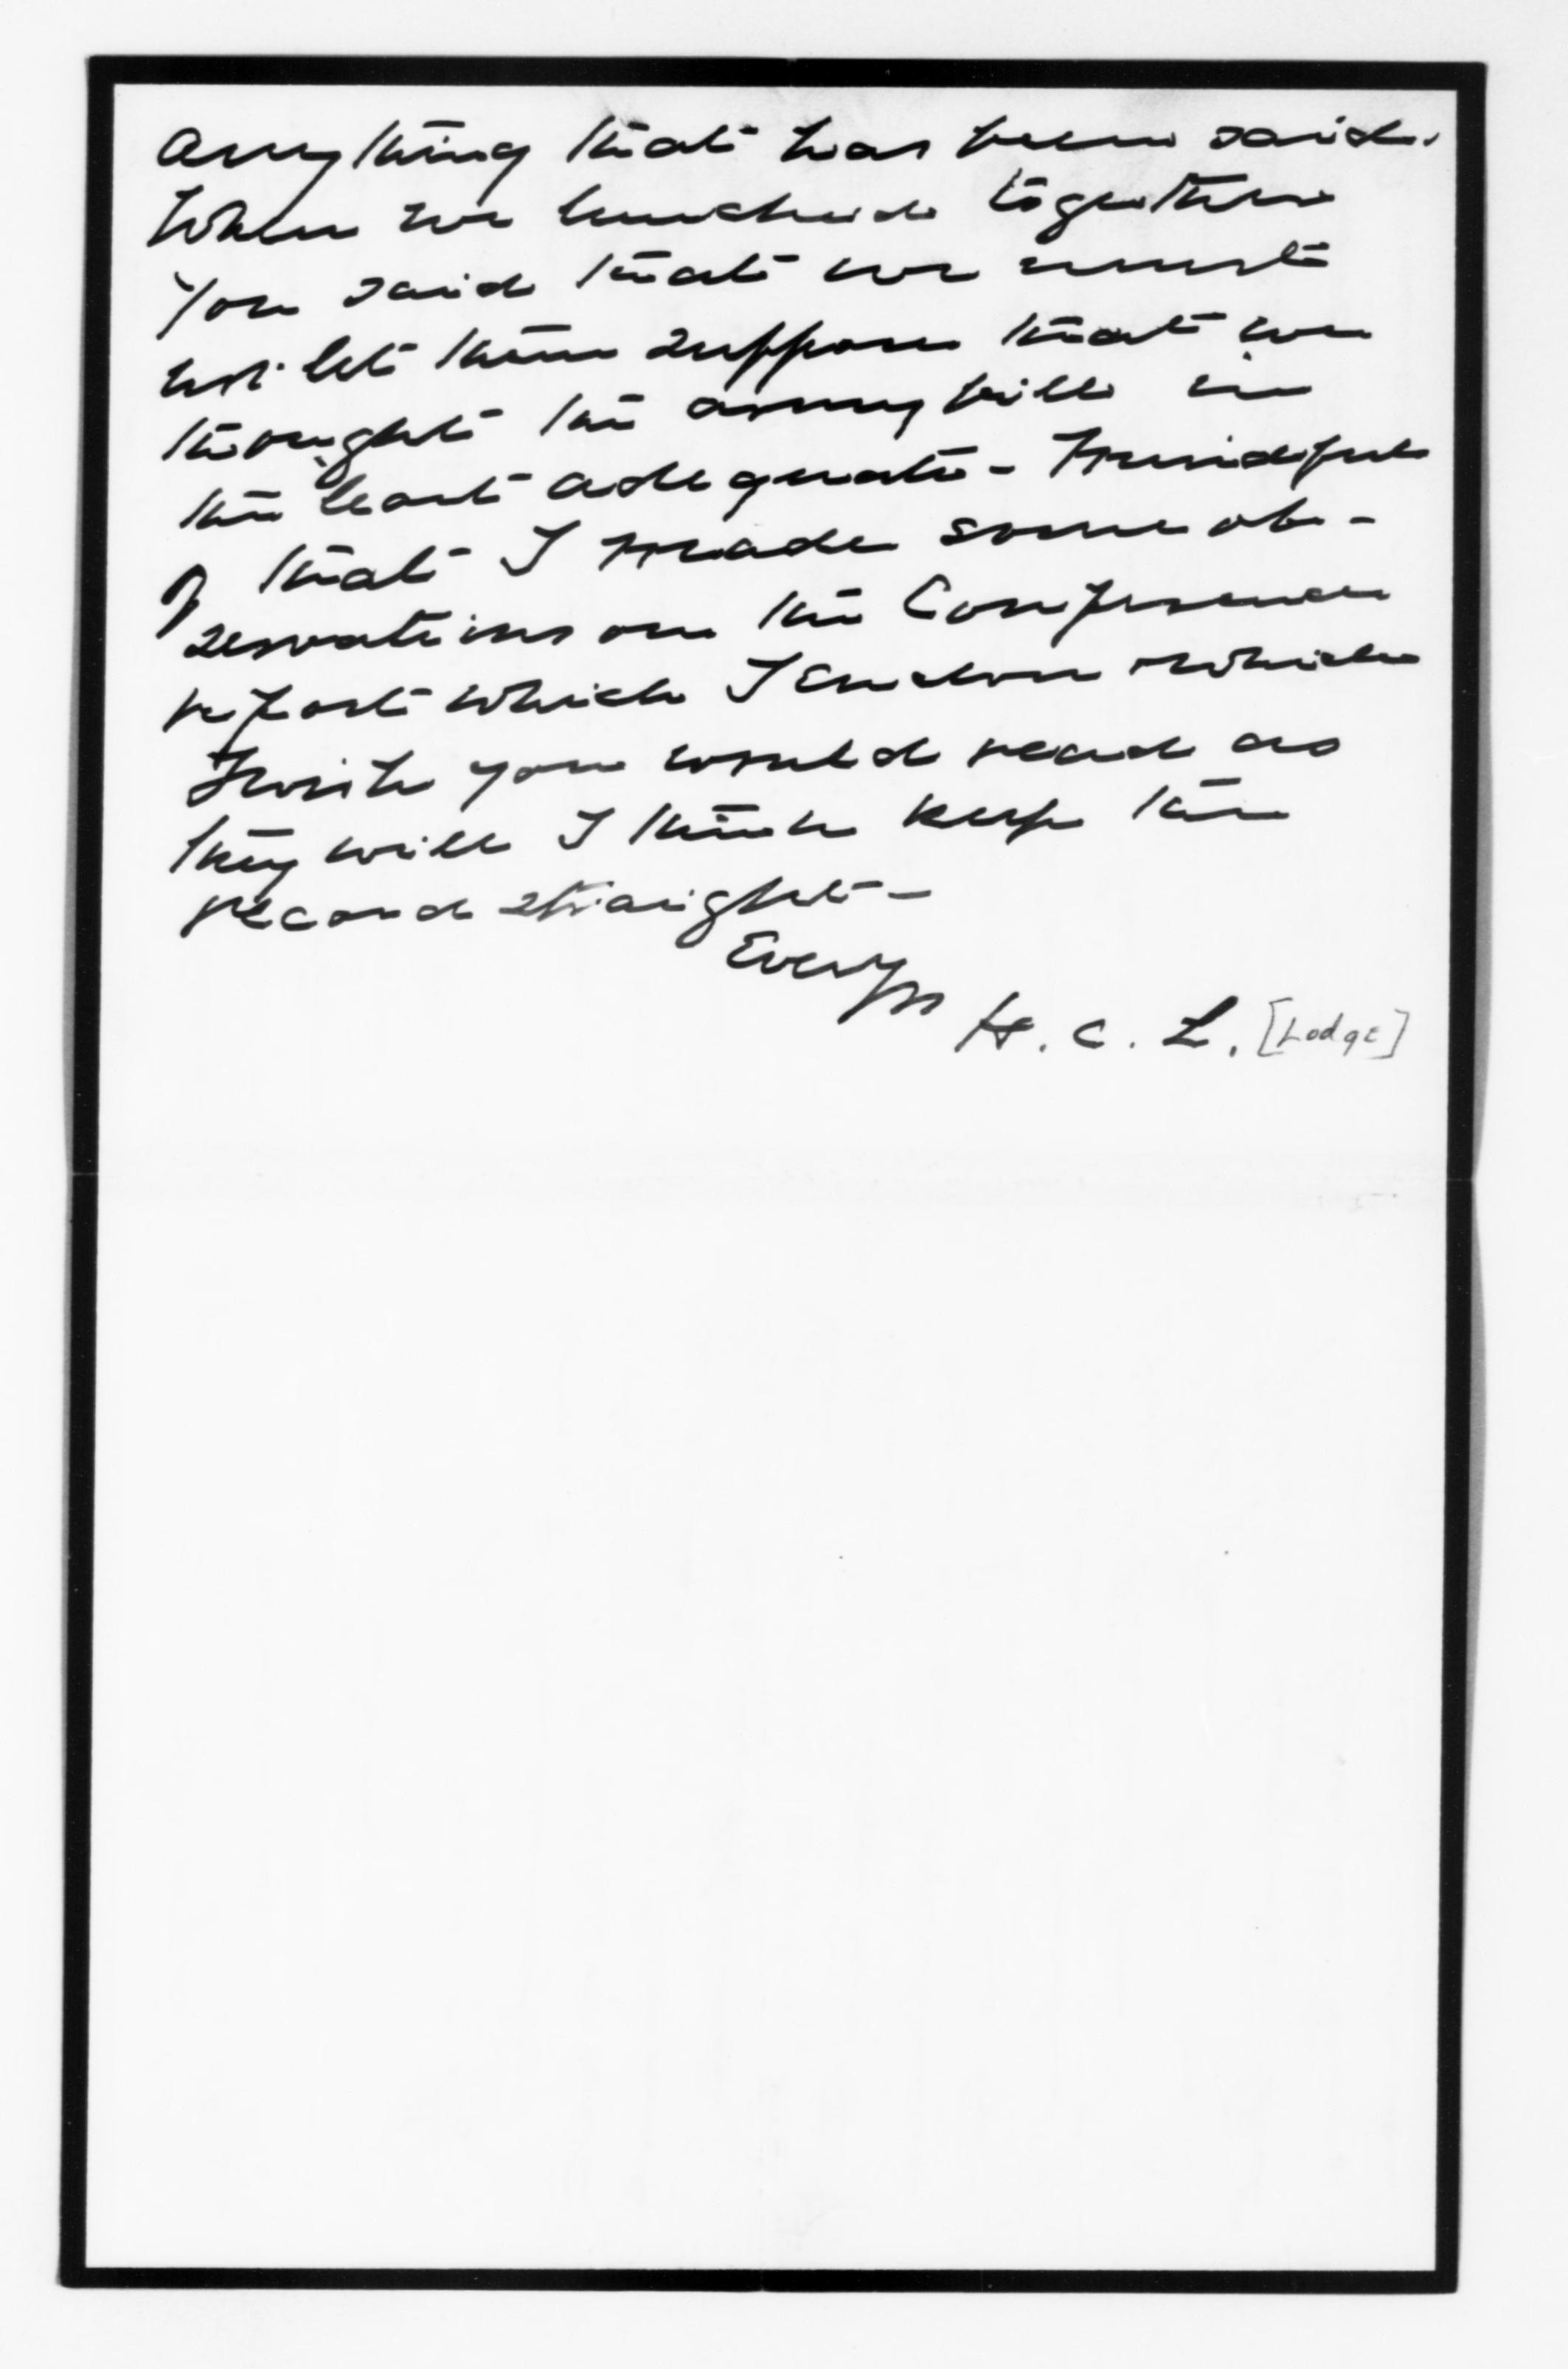 anything that has been said.
When we lunched together
you said that we must
not let them suppose that we
thought the army bill in
the least adequate - Mindful
of that I made some ob-
servations on the Conference
report which I enclose & which
I wish you would read as
they will I think keep the
record straight -
Ever yrs
H. C. L. [Lodge]